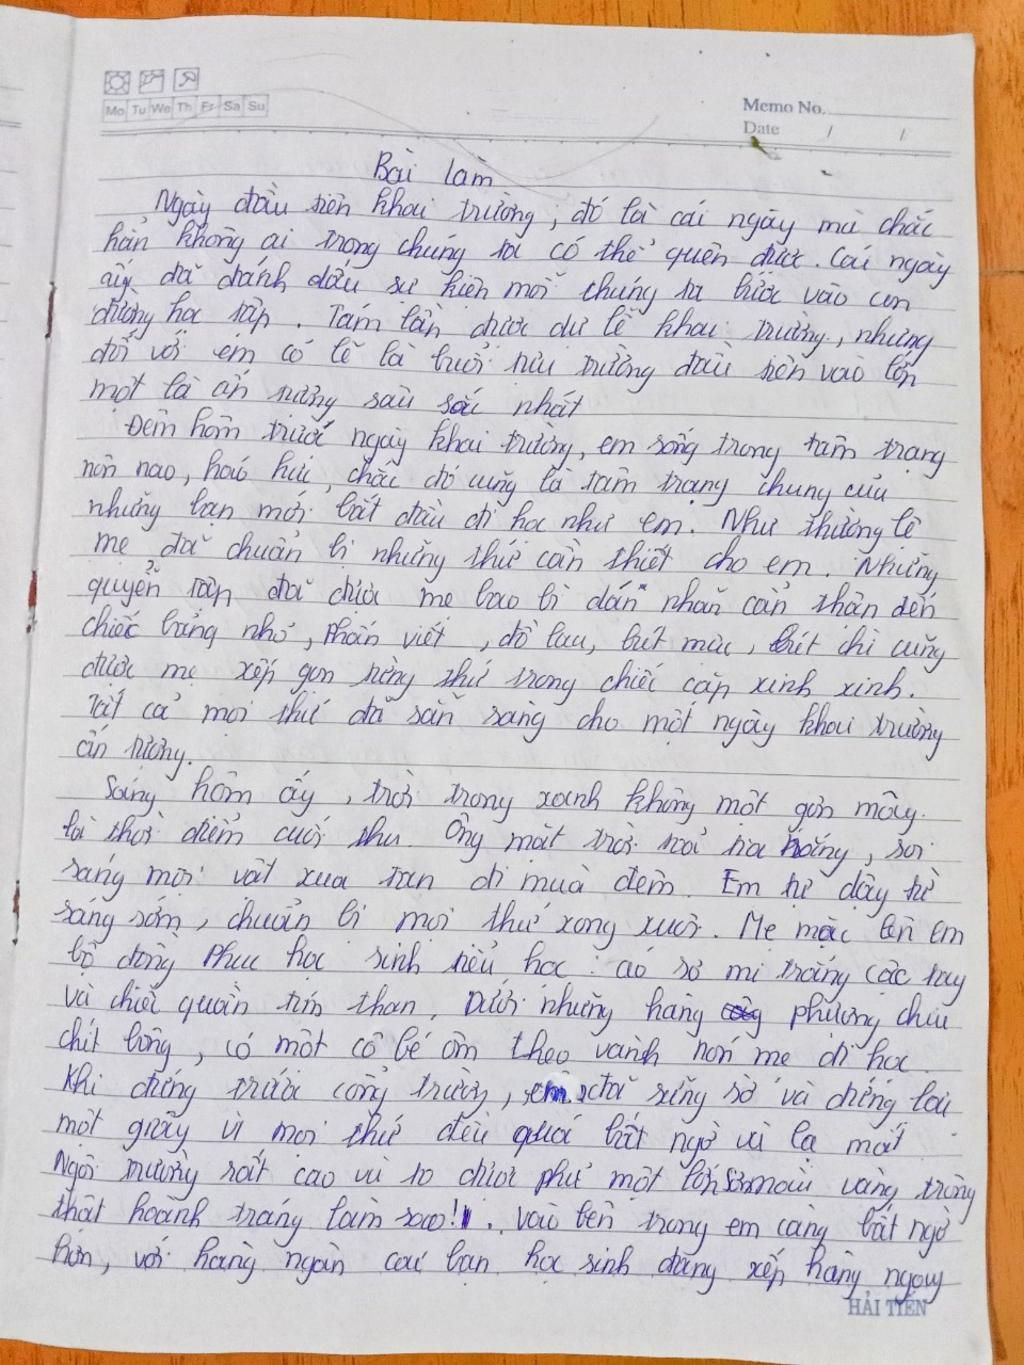 Mo Tu We Th Fr Sa Su
Memo No.
Date / /
Bài làm
Ngày đầu tiên khai trường, đó là cái ngày mà chắc
hẳn không ai trong chúng ta có thể quên được. Cái ngày
ấy đã đánh dấu sự kiện mới chúng ta bước vào con
đường học tập. Tám lần được dự lễ khai trường, nhưng
đối với em có lẽ là buổi tựu trường đầu tiên vào lớp
một là ấn tượng sâu sắc nhất
Đêm hôm trước ngày khai trường, em sống trong tâm trạng
nôn nao, háo hức, chắc đó cũng là tâm trạng chung của
những bạn mới bắt đầu đi học như em. Như thường lệ
mẹ đã chuẩn bị những thứ cần thiết cho em. Những
quyển tập đã được mẹ bao bì dán nhãn cẩn thận đến
chiếc bảng nhỏ, phấn viết, đồ lau, bút mực, bút chì cũng
được mẹ xếp gọn từng thứ trong chiếc cặp xinh xinh.
Tất cả mọi thứ đã sẵn sàng cho một ngày khai trường
ấn tượng.
Sáng hôm ấy, trời trong xanh không một gợn mây.
là thời điểm cuối thu. Ông mặt trời toả tia nắng, soi
sáng mọi vật xua tan đi muà đêm. Em tự dậy từ
sáng sớm, chuẩn bị mọi thứ xong xuôi. Mẹ mặc lên em
bộ đồng phục học sinh tiểu học: áo sơ mi trắng cộc tay
và chiếc quần tím than. Dưới những hàng phượng chíu
chít bông, có một cô bé ôm theo vành nón mẹ đi học.
Khi đứng trước cổng trường, em đã sững sờ và đứng lại
một giây vì mọi thứ đều quá bất ngờ và lạ mắt
Ngôi trường rất cao và to được phủ một lớp sơn màu vàng trông
thật hoành tráng làm sao!. Vào bên trong em càng bất ngờ
hơn, với hàng ngàn các bạn học sinh đang xếp hàng ngay
HẢI TIẾN